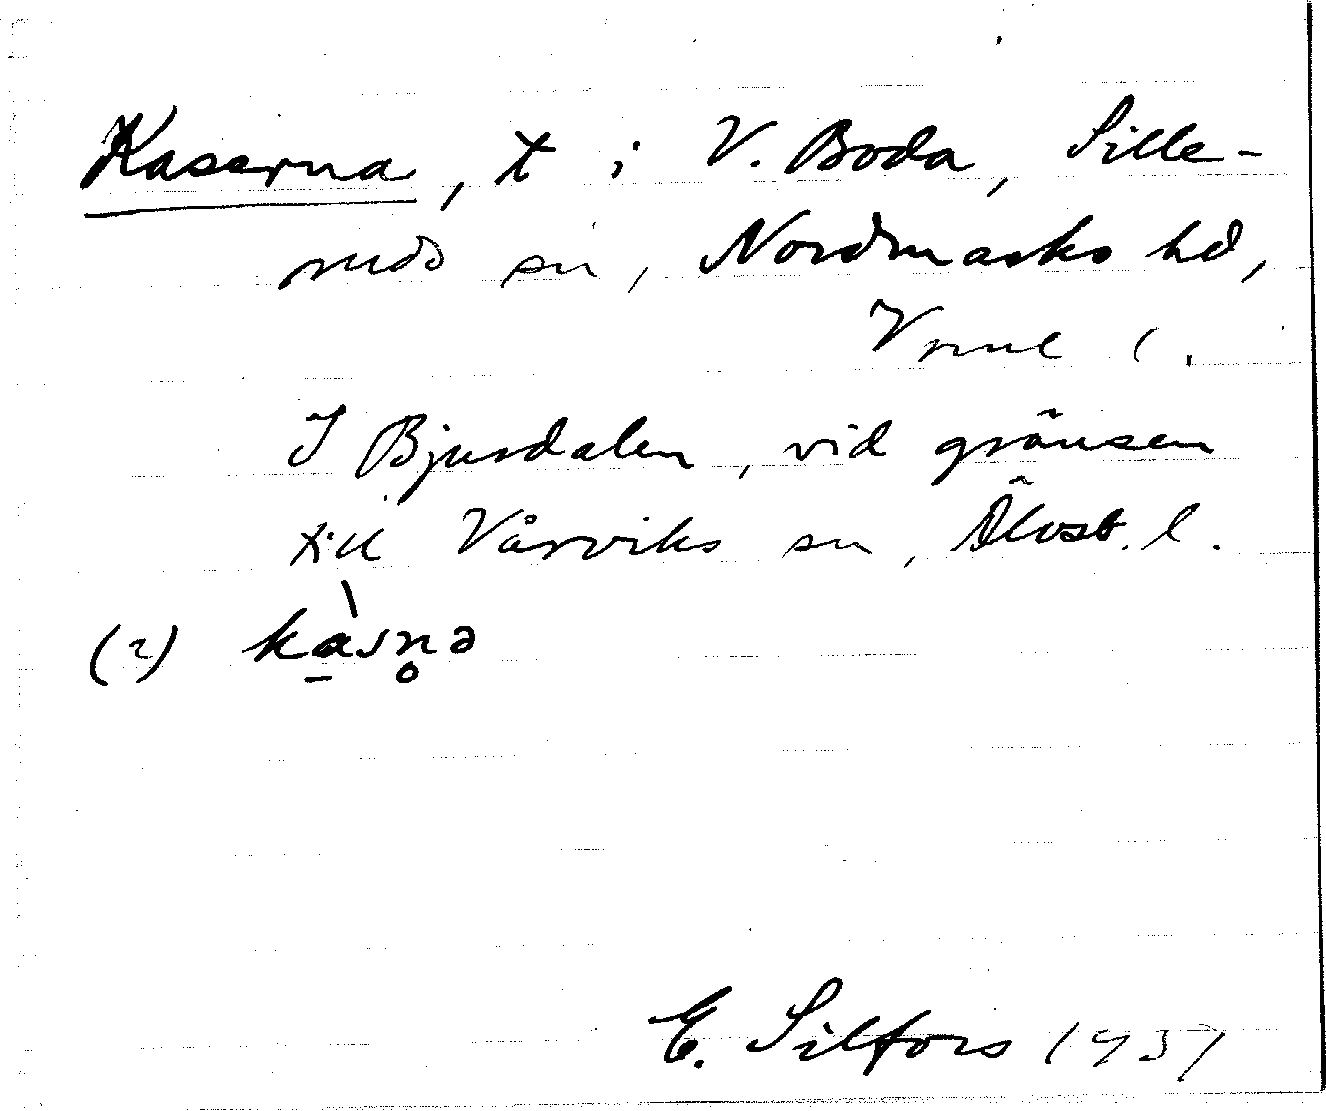 Kaserna, t i V. Boda, Sille-
ruds sn, Nordmarks hd,
Vrml l.
I Bjurdalen, vid gränsen
till Vårviks sn, Älvsb. l.
(2) kàsn̥ə
E. Silfors 1937